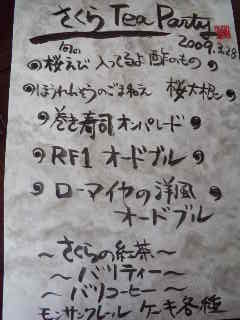 さくら Tea Party
2009.3.28
桜えび 入ってるよ 酢のもの
ほうれんそうのごまねえ 桜大根
巻き寿司オンパレード
RF1 オードブル
ローマイヤの洋風
オードブル
〜さくらの紅茶〜
〜バリティー〜
〜バリコーヒー〜
モンサンクレール ケーキ各種